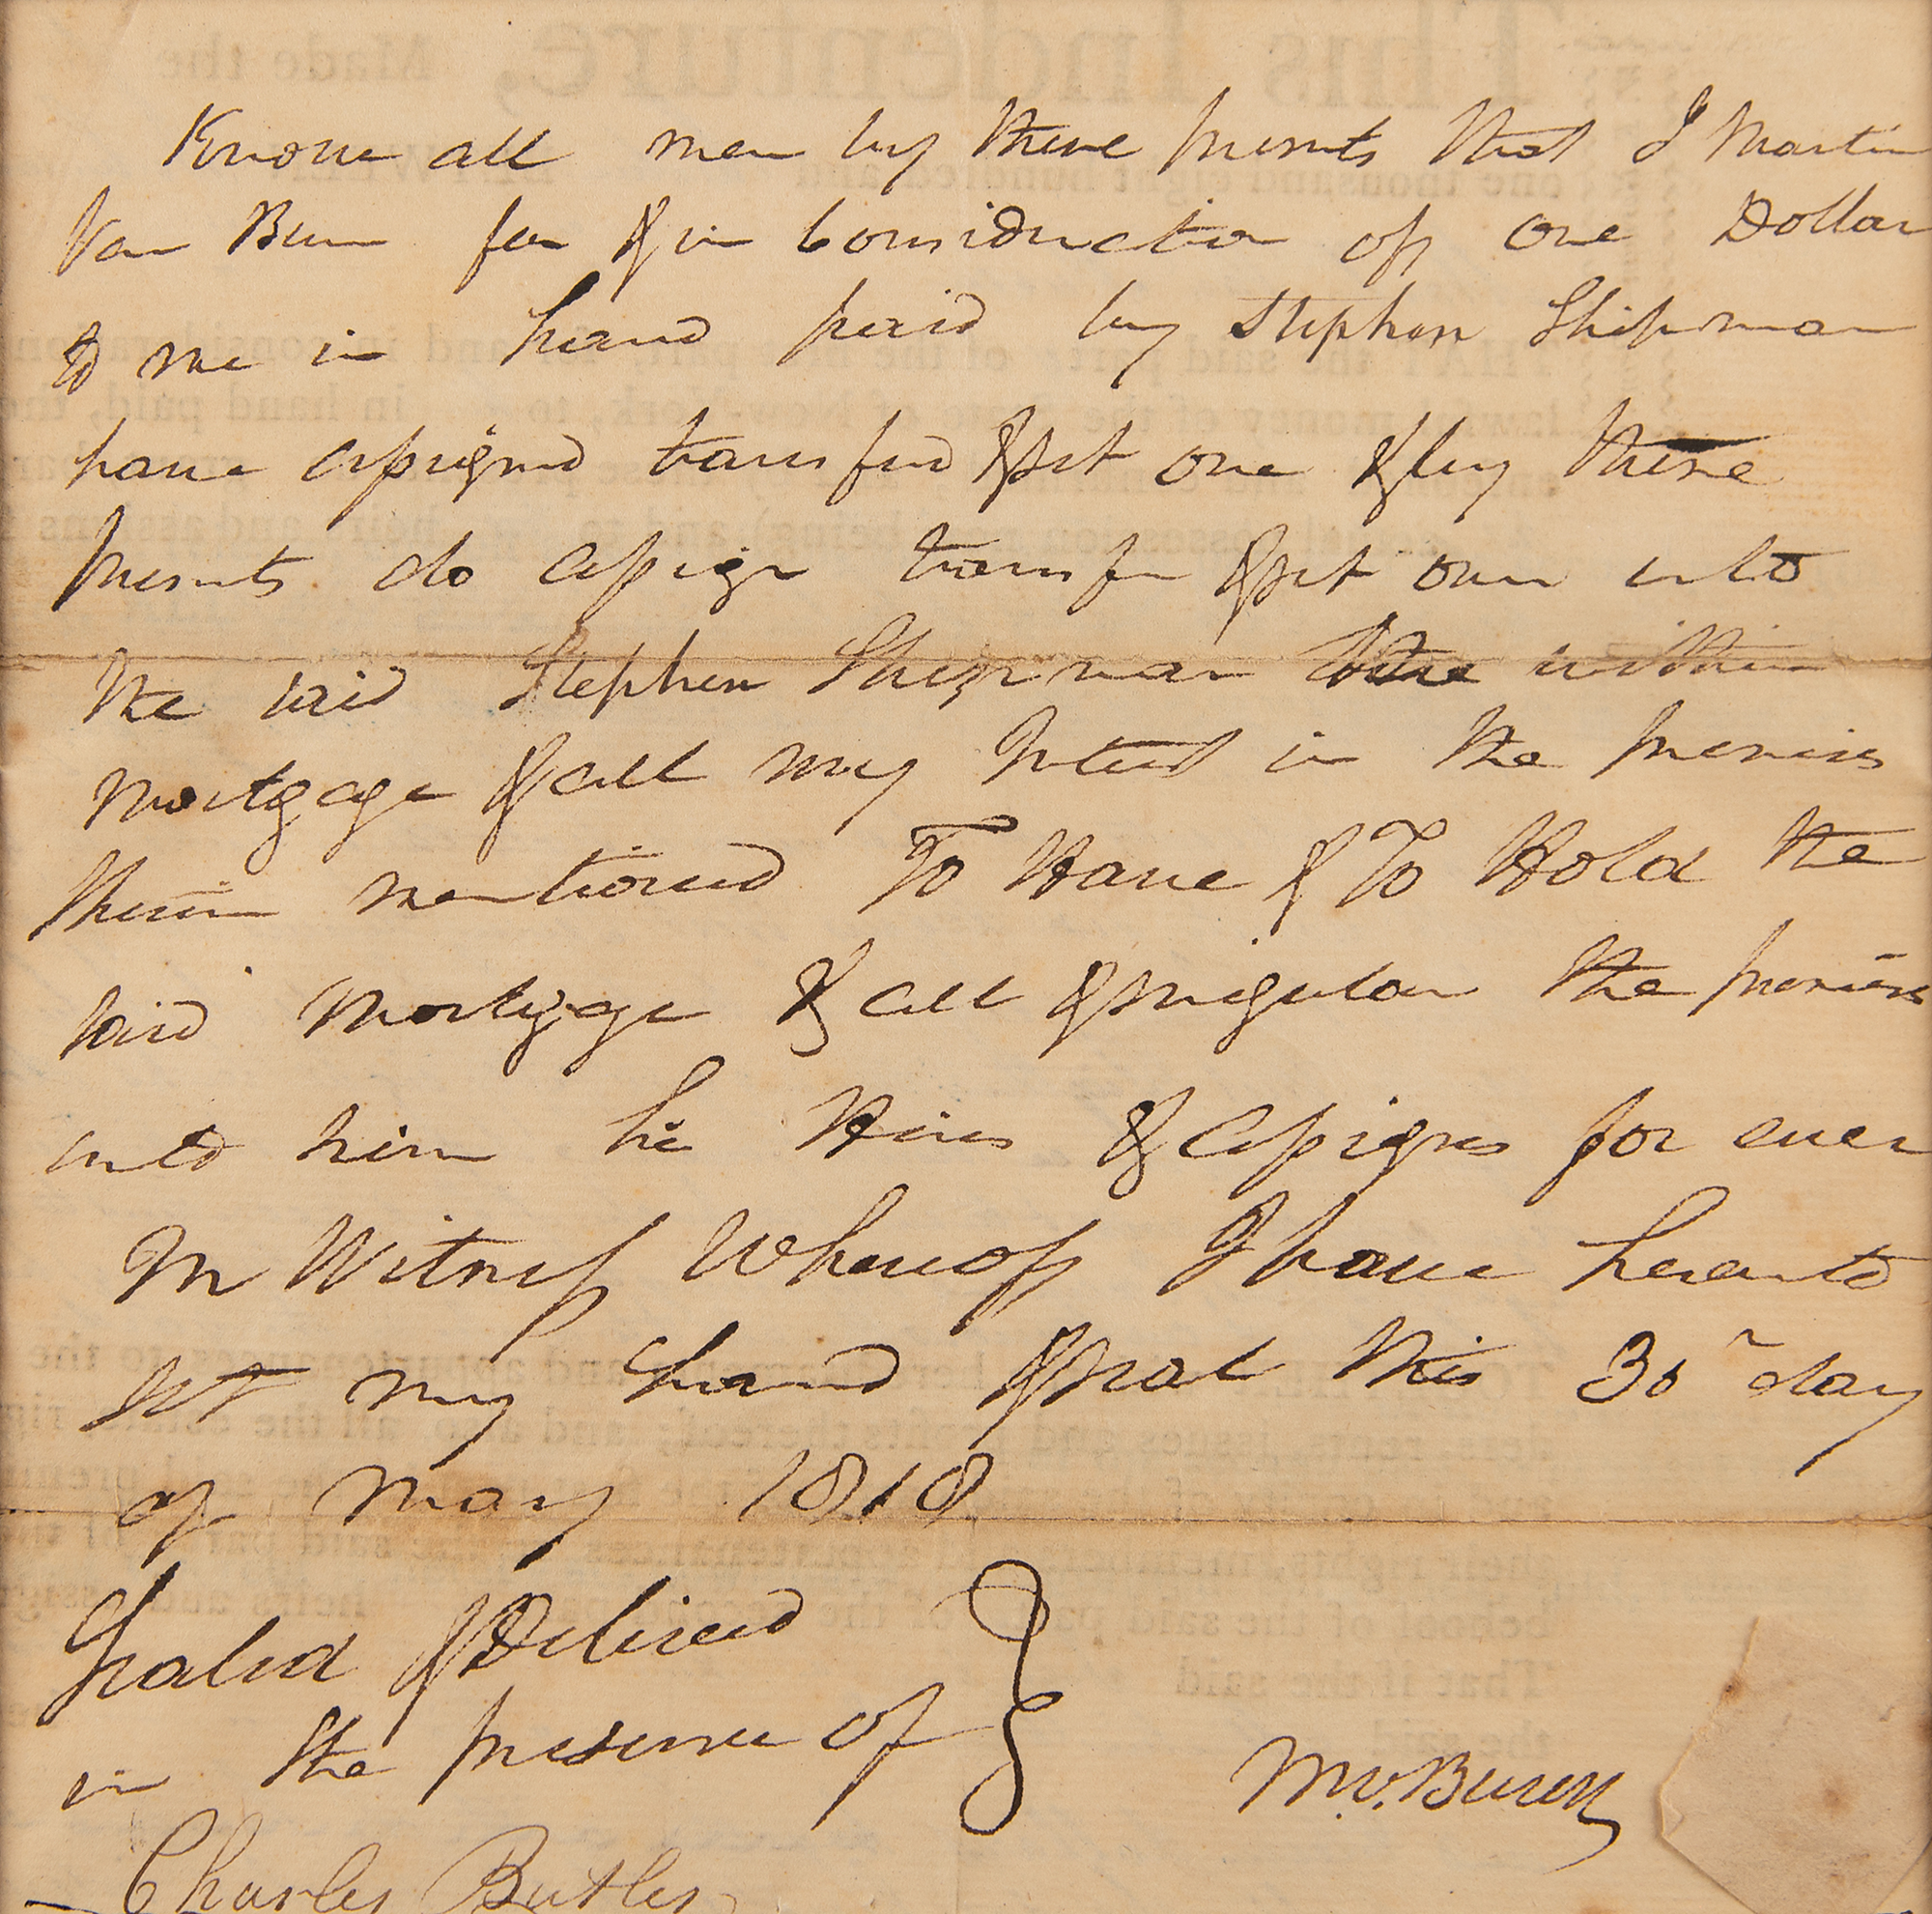 Know all men by these presents that I Martin
Van Buren for & in Consideration of one Dollar
to me in hand paid by Stephen Shipman
have assigned transfered & set over & by these
presents do assign transfer & set over unto
the said Stephen Shipman the within
mortgage & all my Interest in the premises
therein mentioned To Have & To Hold the
said Mortgage & all & singular the premises
unto him his Heirs & assigns for ever
In Witness Whereof I have hereunto
set my hand & seal this 30 day
of May 1818
Sealed & Delivered
in the presence of
M.V. Buren
Charles Butler
This Indenture, Made the
one thousand eight hundred and
in hand paid, the
That if the said